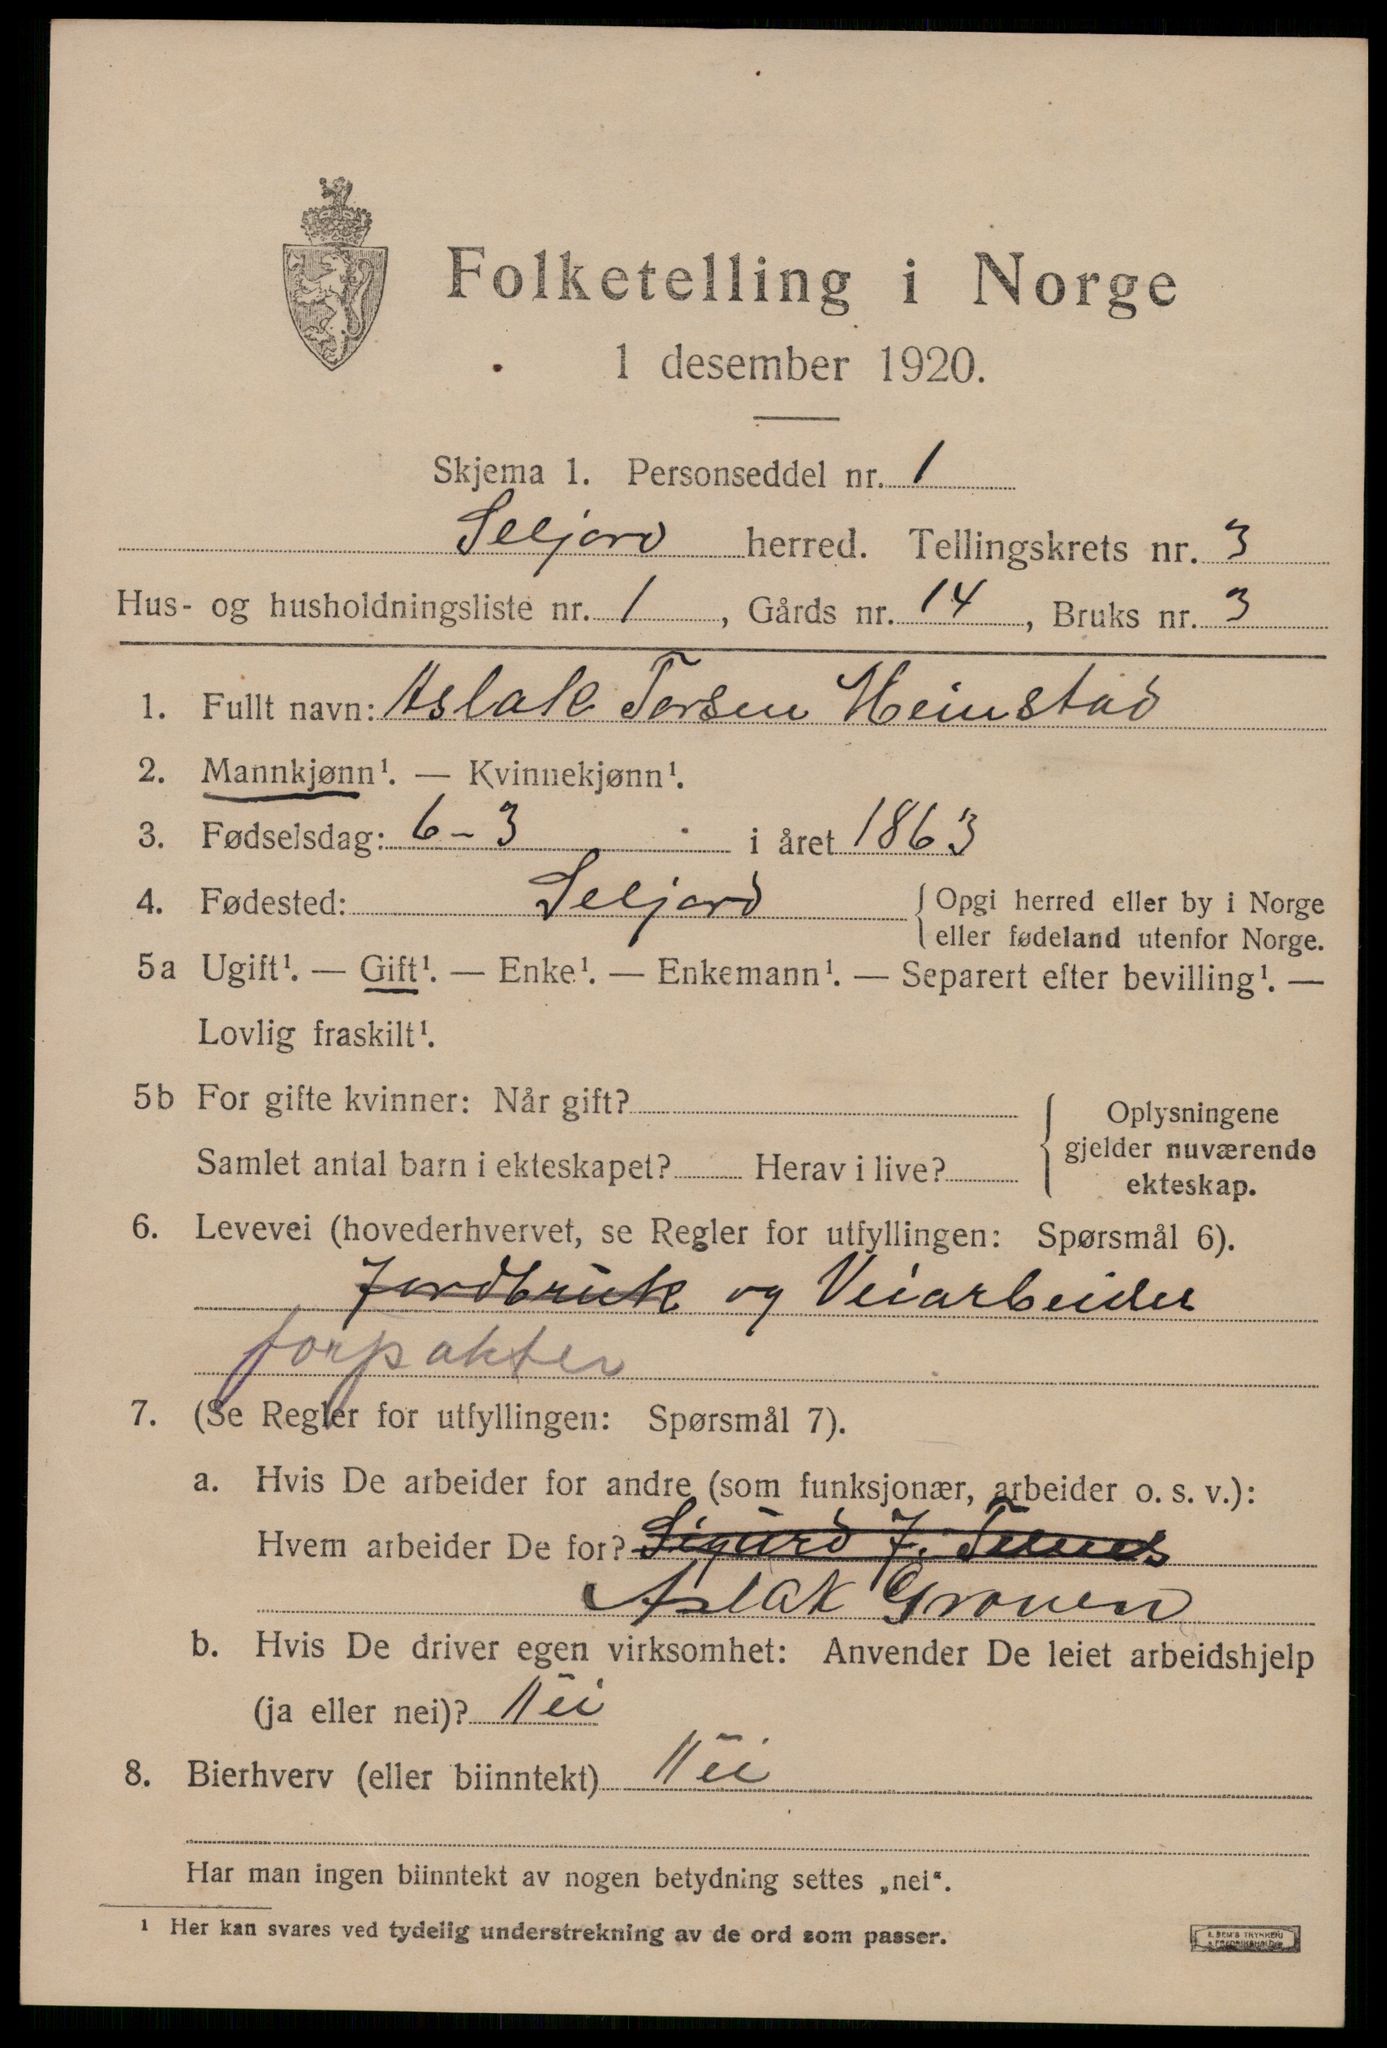 Folketelling i Norge
1 desember 1920.
Skjema 1. Personseddel nr. 1
Seljord herred. Tellingskrets nr. 3
Hus- og husholdningsliste nr. 1, Gårds nr. 14, Bruks nr. 3
1. Fullt navn: Aslak Torsen Heimstad
2. Mannkjønn¹. — Kvinnekjønn¹.
3. Fødselsdag: 6-3 i året 1863
4. Fødested: Seljord { Opgi herred eller by i Norge
eller fødeland utenfor Norge.
5a Ugift¹. — Gift¹. — Enke¹. — Enkemann¹. — Separert efter bevilling¹. —
Lovlig fraskilt¹.
5b For gifte kvinner: Når gift?
Samlet antal barn i ekteskapet? Herav i live?
Oplysningene
gjelder nuværende
ekteskap.
6. Levevei (hovederhvervet, se Regler for utfyllingen: Spørsmål 6).
Jordbruk og Veiarbeider
forpakter
7. (Se Regler for utfyllingen: Spørsmål 7).
a. Hvis De arbeider for andre (som funksjonær, arbeider o. s. v.):
Hvem arbeider De for? Sigurd J.
Aslak Groven
b. Hvis De driver egen virksomhet: Anvender De leiet arbeidshjelp
(ja eller nei)? Nei
8. Bierhverv (eller biinntekt) Nei
Har man ingen biinntekt av nogen betydning settes „nei“.
¹ Her kan svares ved tydelig understrekning av de ord som passer.